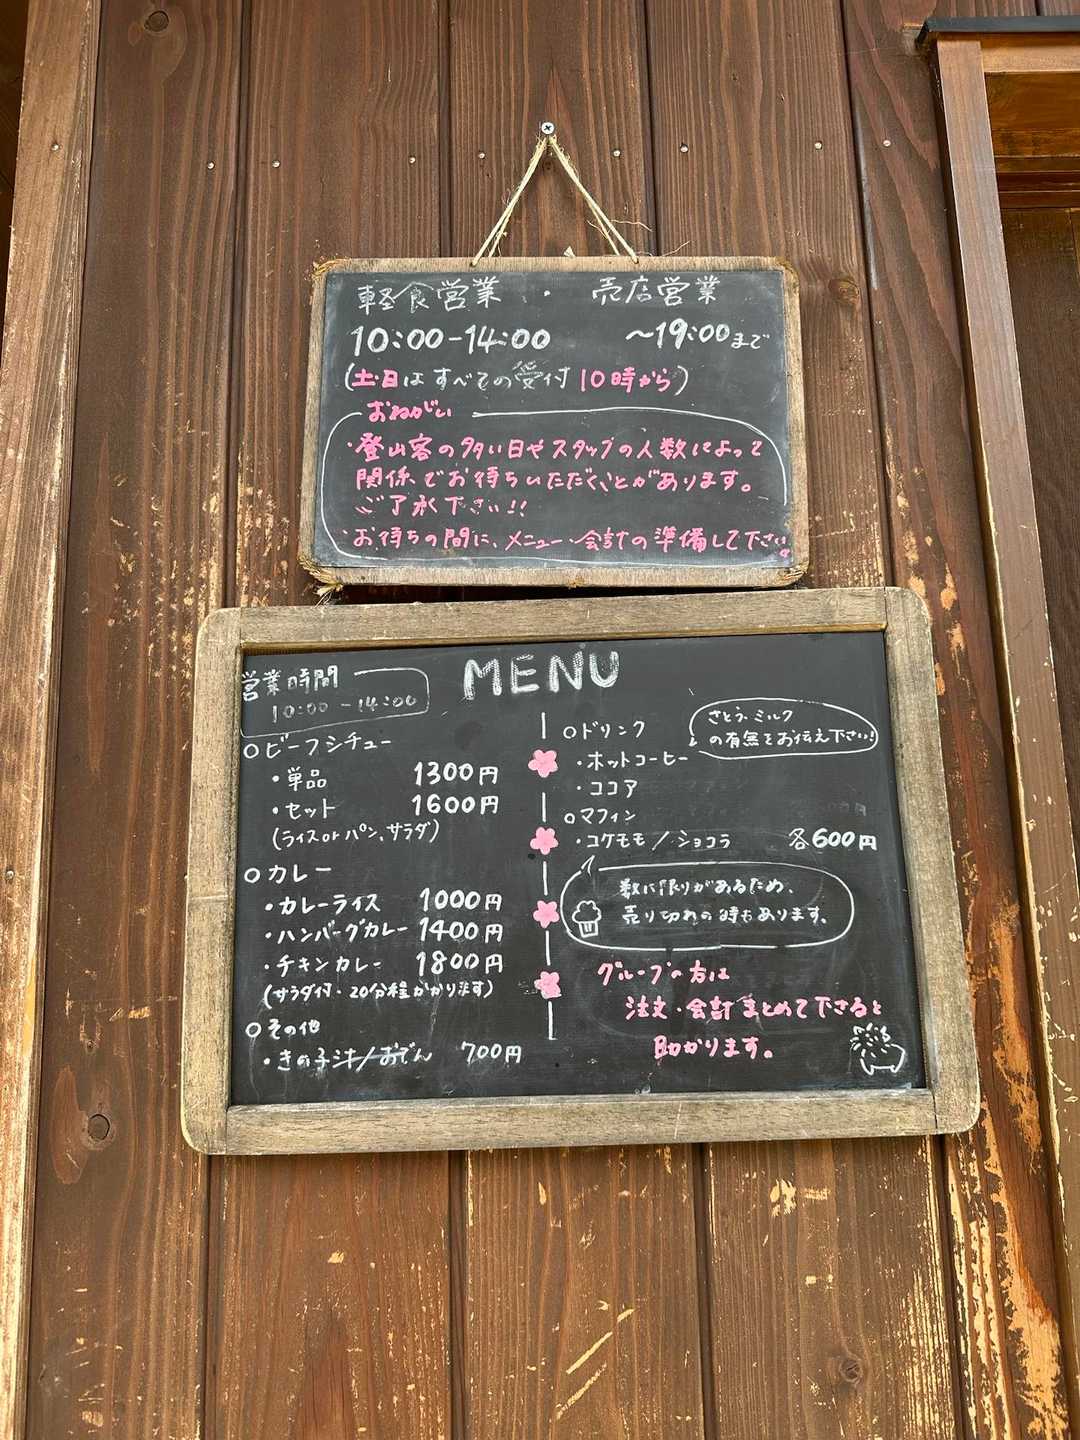 軽食営業 ・ 売店営業
10:00-14:00 ~19:00まで
(土・日はすべての受付10時から)
おねがい
・登山客の多い日やスタッフの人数によって
関係でお待ちいただくことがあります。
ご了承下さい!!
・お待ちの間に、メニュー・会計の準備して下さい
MENU
営業時間
10:00-14:00
○ビーフシチュー
・単品 1300円
・セット 1600円
(ライスorパン、サラダ)
○カレー
・カレーライス 1000円
・ハンバーグカレー 1400円
・チキンカレー 1800円
(サラダ付・20分程かかります)
○その他
・きの子汁/おでん 700円
○ドリンク
さとう、ミルク
の有無をお伝え下さい!
・ホットコーヒー
・ココア
○マフィン
・コケモモ/ショコラ 各600円
数に限りがあるため、
売り切れの時もあります。
グループの方は
注文・会計まとめて下さると
助かります。